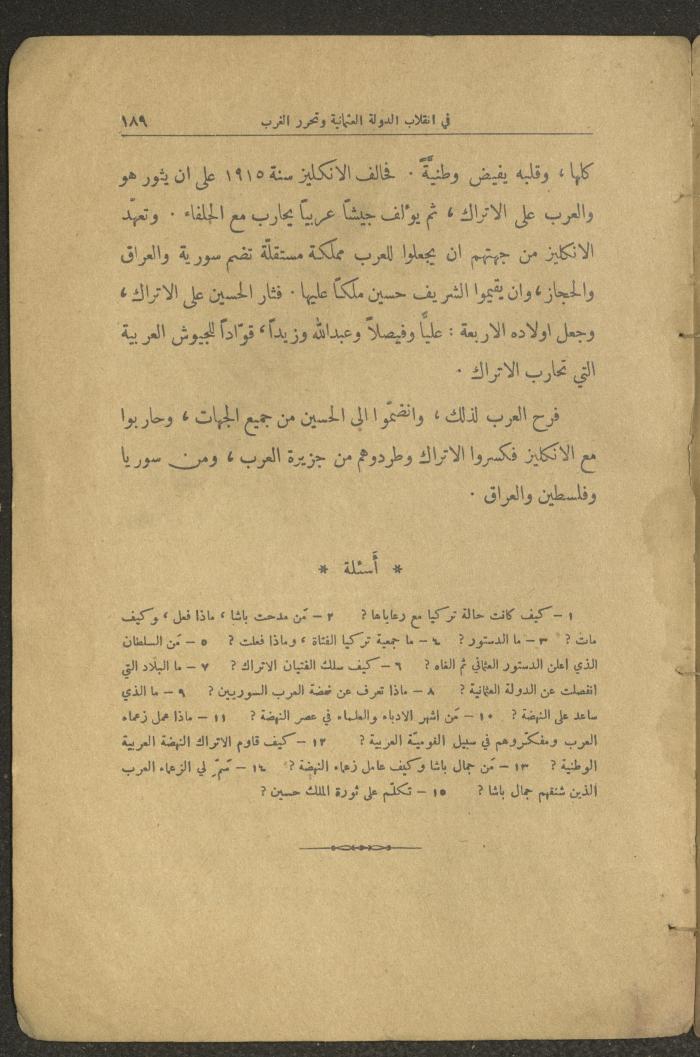 في انقلاب الدولة العثمانية وتحرر العرب ١٨٩
كلها ، وقلبه يفيض وطنيَّةً . فحالف الانكليز سنة ١٩١٥ على ان يثور هو
والعرب على الاتراك ، ثم يؤلف جيشًا عربيًّا يحارب مع الحلفاء . وتعهّد
الانكليز من جهتهم ان يجعلوا للعرب مملكة مستقلّة تضم سورية والعراق
والحجاز ، وان يقيموا الشريف حسين ملكًا عليها . فثار الحسين على الاتراك ،
وجعل اولاده الاربعة : عليًّا وفيصلاً وعبدالله وزيداً ، قوّاداً للجيوش العربية
التي تحارب الاتراك .
فرح العرب لذلك ، وانضمّوا الى الحسين من جميع الجهات ، وحاربوا
مع الانكليز فكسروا الاتراك وطردوهم من جزيرة العرب ، ومن سوريا
وفلسطين والعراق .
* أَسئلة *
١ – كيف كانت حالة تركيا مع رعاياها ؟ ٢ – مَن مدحت باشا ، ماذا فعل ، وكيف
مات ؟ ٣ – ما الدستور ؟ ٤ – ما جمعية تركيا الفتاة ، وماذا فعلت ؟ ٥ – مَن السلطان
الذي اعلن الدستور العثماني ثم الغاه ؟ ٦ – كيف سلك الفتيان الاتراك ؟ ٧ – ما البلاد التي
انفصلت عن الدولة العثمانية ؟ ٨ – ماذا تعرف عن نهضة العرب السوريين ؟ ٩ – ما الذي
ساعد على النهضة ؟ ١٠ – مَن اشهر الادباء والعلماء في عصر النهضة ؟ ١١ – ماذا عمل زعماء
العرب ومفكّروهم في سبيل القوميّة العربية ؟ ١٢ – كيف قاوم الاتراك النهضة العربية
الوطنية ؟ ١٣ – مَن جمال باشا وكيف عامل زعماء النهضة ؟ ١٤ – سَمِّ لي الزعماء العرب
الذين شنقهم جمال باشا ؟ ١٥ – تكلّم على ثورة الملك حسين ؟